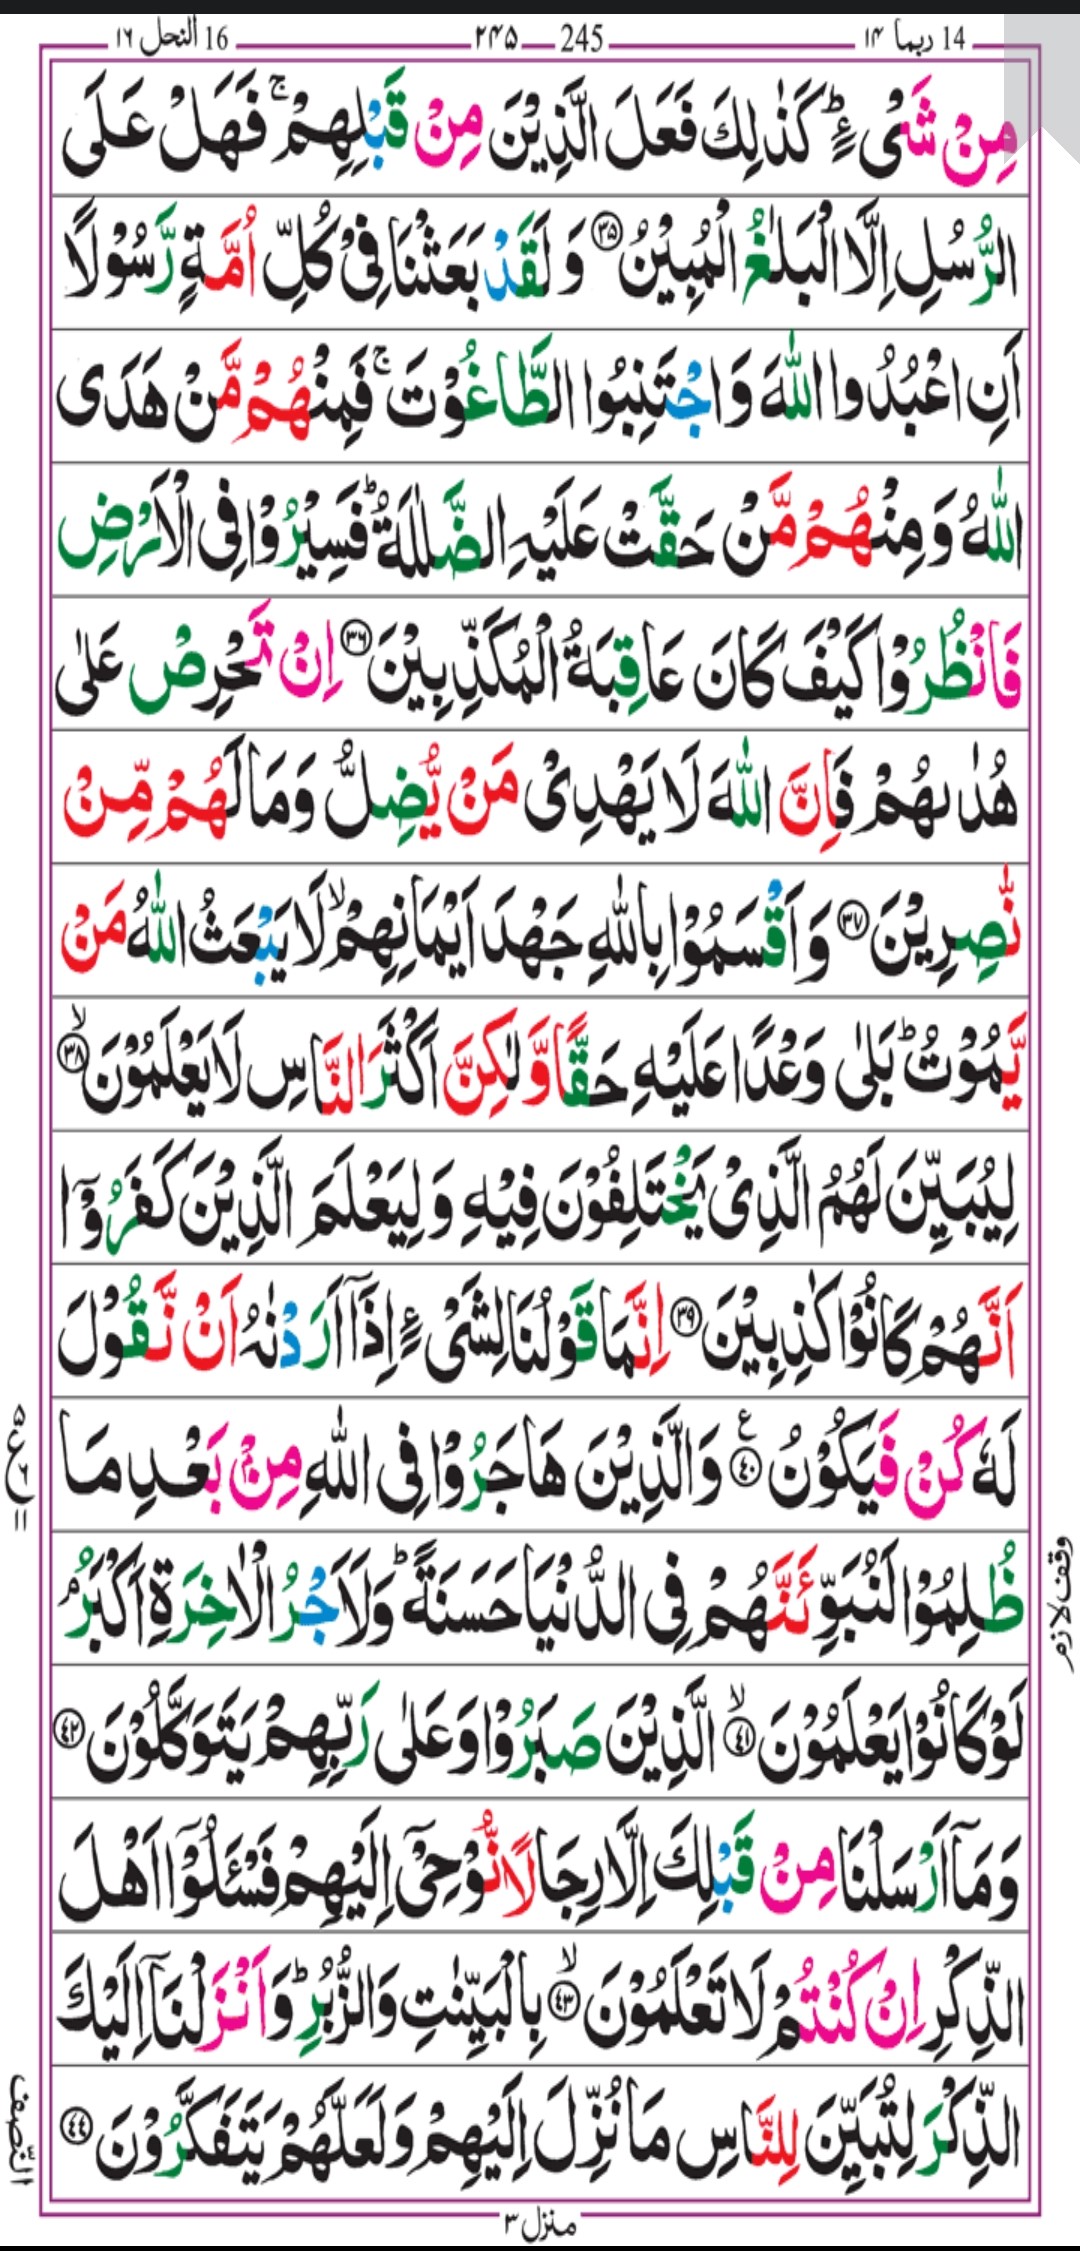 16 النحل ١٦ ٢٤٥ 245 14 ربما ١٤
مِنْ شَیْءٍ ؕ كَذٰلِكَ فَعَلَ الَّذِیْنَ مِنْ قَبْلِهِمْ ۚ فَهَلْ عَلَی
الرُّسُلِ اِلَّا الْبَلٰغُ الْمُبِیْنُ ۝۳۵ وَ لَقَدْ بَعَثْنَا فِیْ كُلِّ اُمَّةٍ رَّسُوْلًا
اَنِ اعْبُدُوا اللّٰهَ وَ اجْتَنِبُوا الطَّاغُوْتَ ۚ فَمِنْهُمْ مَّنْ هَدَی
اللّٰهُ وَ مِنْهُمْ مَّنْ حَقَّتْ عَلَیْهِ الضَّلٰلَةُ ؕ فَسِیْرُوْا فِی الْاَرْضِ
فَانْظُرُوْا كَیْفَ كَانَ عَاقِبَةُ الْمُكَذِّبِیْنَ ۝۳۶ اِنْ تَحْرِصْ عَلٰی
هُدٰىهُمْ فَاِنَّ اللّٰهَ لَا یَهْدِیْ مَنْ یُّضِلُّ وَ مَا لَهُمْ مِّنْ
نّٰصِرِیْنَ ۝۳۷ وَ اَقْسَمُوْا بِاللّٰهِ جَهْدَ اَیْمَانِهِمْ ۙ لَا یَبْعَثُ اللّٰهُ مَنْ
یَّمُوْتُ ؕ بَلٰی وَعْدًا عَلَیْهِ حَقًّا وَّ لٰكِنَّ اَكْثَرَ النَّاسِ لَا یَعْلَمُوْنَ ۝۳۸ ۙ
لِیُبَیِّنَ لَهُمُ الَّذِیْ یَخْتَلِفُوْنَ فِیْهِ وَ لِیَعْلَمَ الَّذِیْنَ كَفَرُوْۤا
اَنَّهُمْ كَانُوْا كٰذِبِیْنَ ۝۳۹ اِنَّمَا قَوْلُنَا لِشَیْءٍ اِذَاۤ اَرَدْنٰهُ اَنْ نَّقُوْلَ
لَهٗ كُنْ فَیَكُوْنُ ۝٤٠ ۧ وَ الَّذِیْنَ هَاجَرُوْا فِی اللّٰهِ مِنْۢ بَعْدِ مَا
۵ ع ۶ ۱۱
ظُلِمُوْا لَنُبَوِّئَنَّهُمْ فِی الدُّنْیَا حَسَنَةً ؕ وَ لَاَجْرُ الْاٰخِرَةِ اَكْبَرُ ۘ
وقف لازم
لَوْ كَانُوْا یَعْلَمُوْنَ ۝٤١ ۙ الَّذِیْنَ صَبَرُوْا وَ عَلٰی رَبِّهِمْ یَتَوَكَّلُوْنَ ۝٤٢
وَ مَاۤ اَرْسَلْنَا مِنْ قَبْلِكَ اِلَّا رِجَالًا نُّوْحِیْۤ اِلَیْهِمْ فَسْـَٔلُوْۤا اَهْلَ
الذِّكْرِ اِنْ كُنْتُمْ لَا تَعْلَمُوْنَ ۝٤٣ ۙ بِالْبَیِّنٰتِ وَ الزُّبُرِ ؕ وَ اَنْزَلْنَاۤ اِلَیْكَ
الذِّكْرَ لِتُبَیِّنَ لِلنَّاسِ مَا نُزِّلَ اِلَیْهِمْ وَ لَعَلَّهُمْ یَتَفَكَّرُوْنَ ۝٤٤
النّصف
منزل ٣